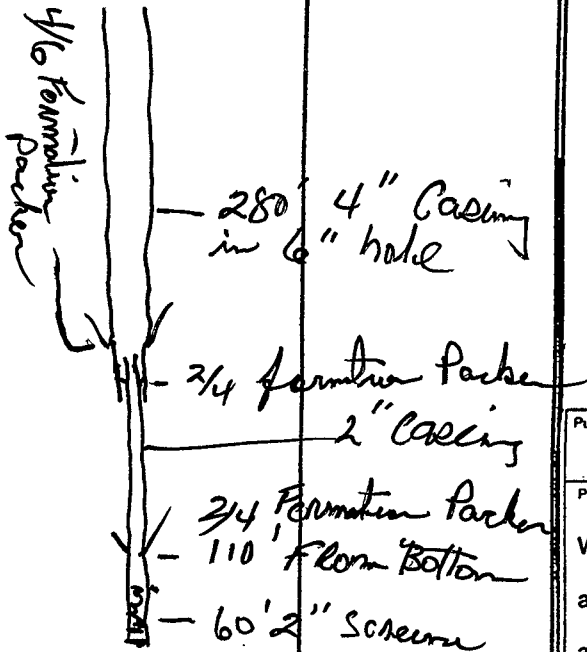 4/6 Formation
Packer
280' 4" Casing
in 6" hole
2/4 formation Packer
2" Casing
2/4 Formation Packer
110' From Bottom
60' 2" screen
Pu
P
V
a
a